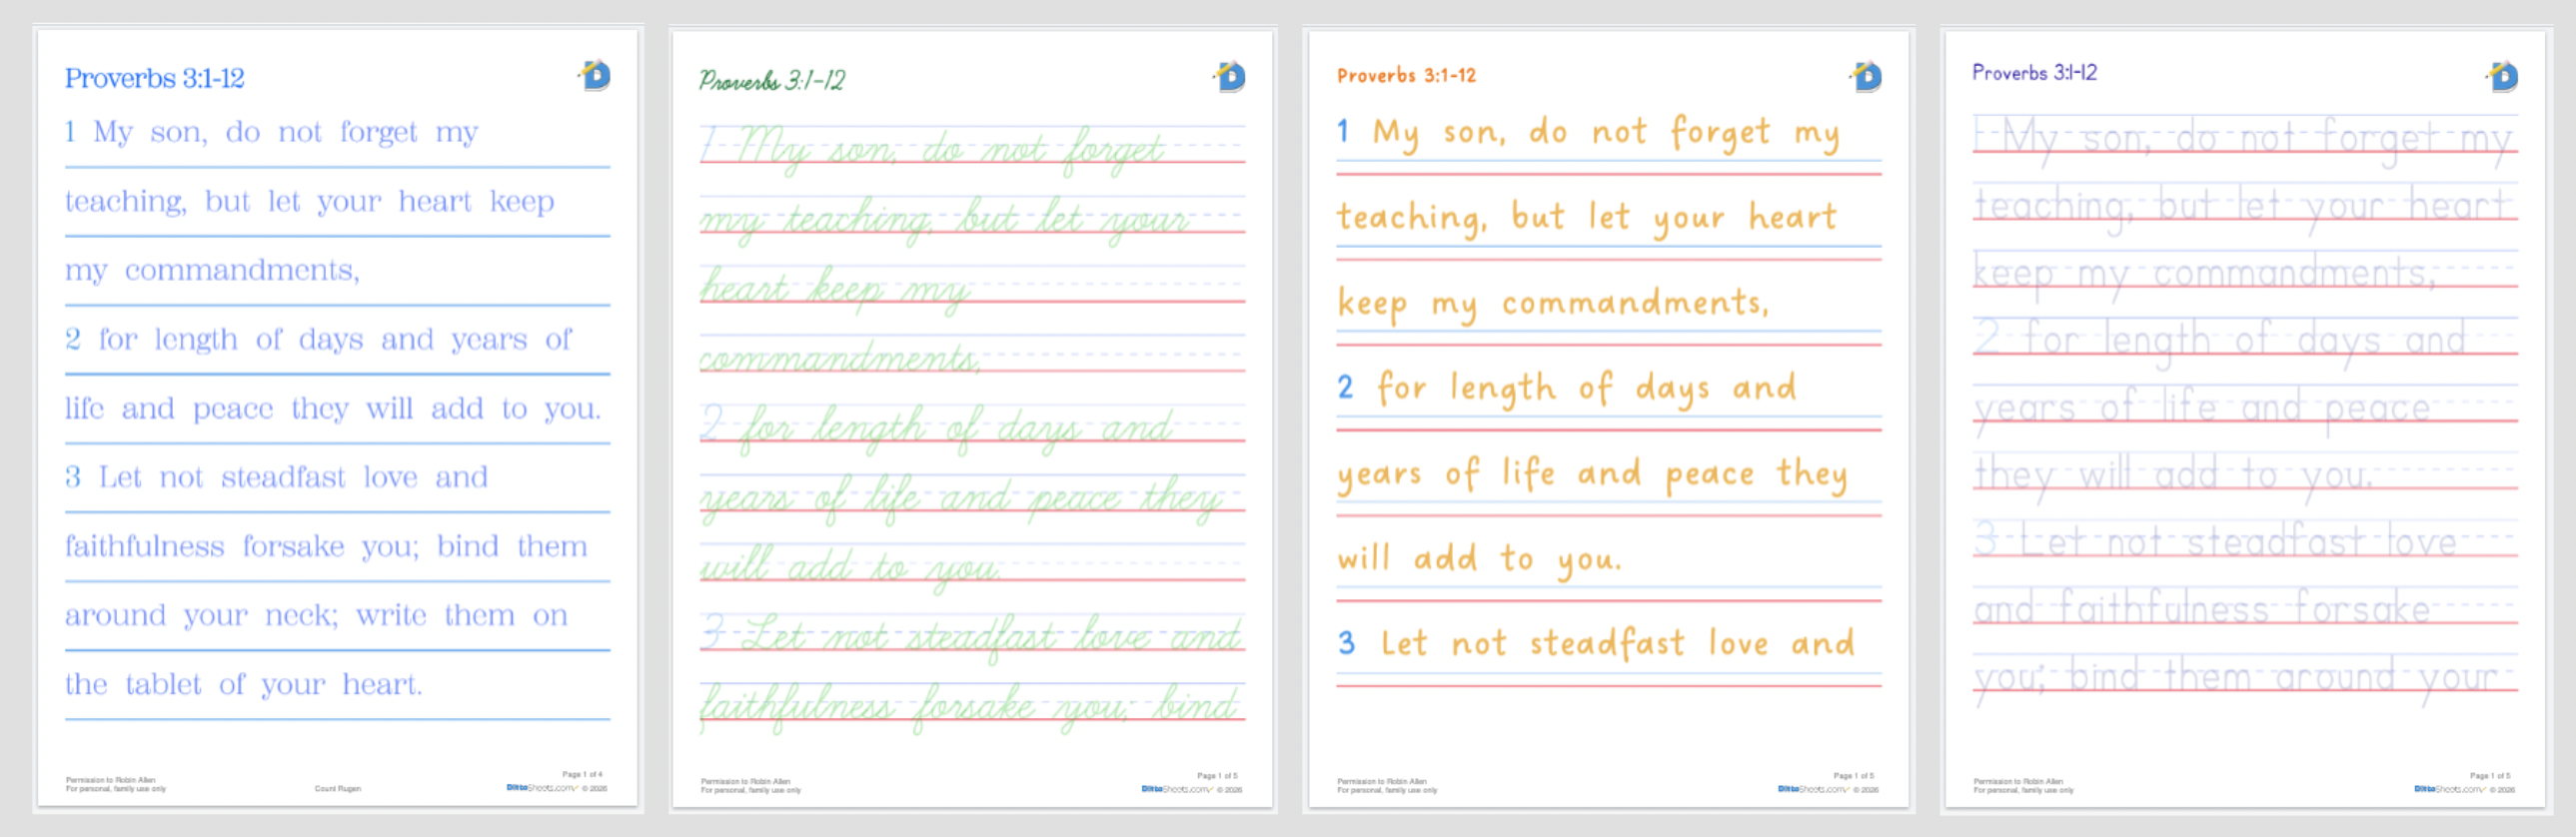 Proverbs 3:1-12
1 My son, do not forget my
teaching, but let your heart keep
my commandments,
2 for length of days and years of
life and peace they will add to you.
3 Let not steadfast love and
faithfulness forsake you; bind them
around your neck; write them on
the tablet of your heart.
Permission to Robin Allen
For personal, family use only
Count Rugen
Page 1 of 4
DittoSheets.com © 2026
Proverbs 3:1-12
1 My son, do not forget
my teaching, but let your
heart keep my
commandments,
2 for length of days and
years of life and peace they
will add to you.
3 Let not steadfast love and
faithfulness forsake you; bind
Permission to Robin Allen
For personal, family use only
Page 1 of 5
DittoSheets.com © 2026
Proverbs 3:1-12
1 My son, do not forget my
teaching, but let your heart
keep my commandments,
2 for length of days and
years of life and peace they
will add to you.
3 Let not steadfast love and
Permission to Robin Allen
For personal, family use only
Page 1 of 5
DittoSheets.com © 2026
Proverbs 3:1-12
1 My son, do not forget my
teaching, but let your heart
keep my commandments,
2 for length of days and
years of life and peace
they will add to you.
3 Let not steadfast love
and faithfulness forsake
you; bind them around your
Permission to Robin Allen
For personal, family use only
Page 1 of 5
DittoSheets.com © 2026